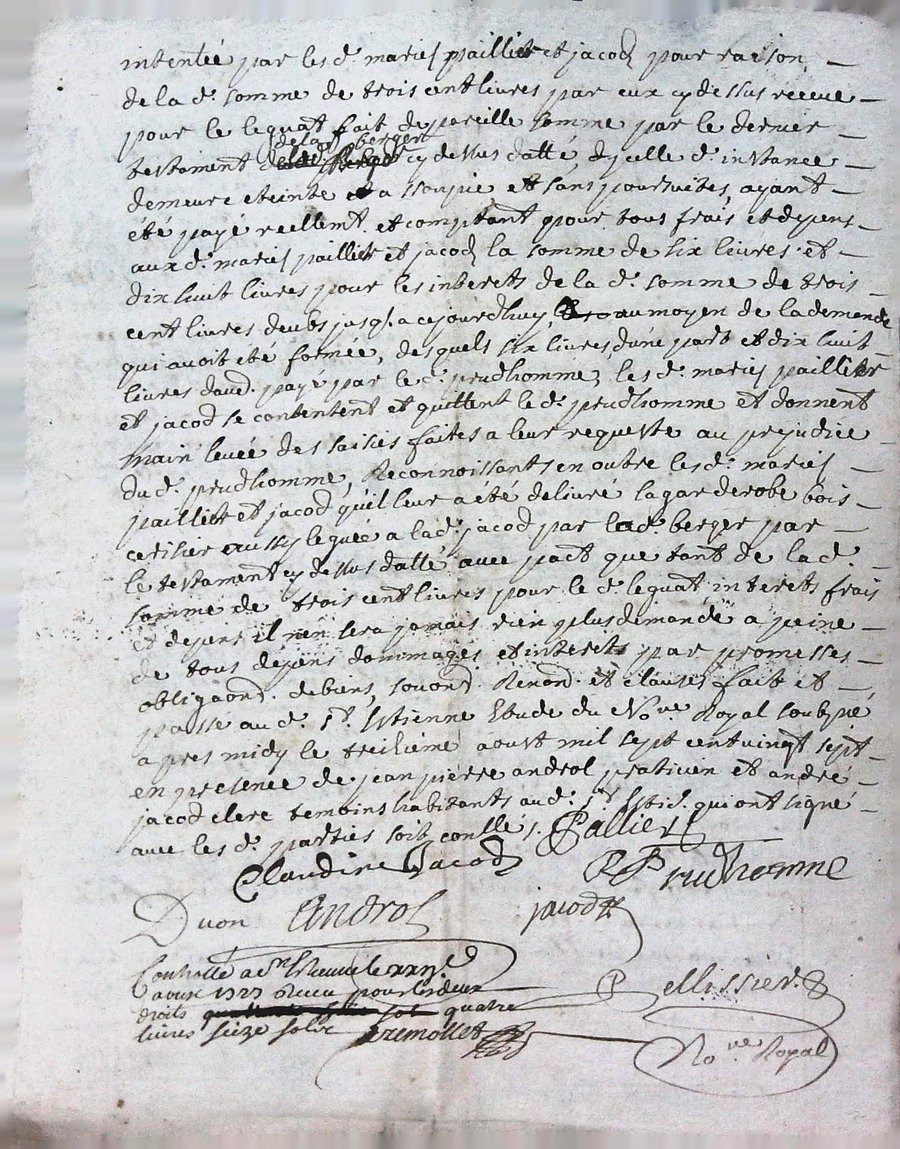 intentée par les d. mariés paillier et jacod pour raison
de la d. somme de trois cent livres par eux cy dessus receue
pour le legual fait de pareille somme par le dernier
de la d. berger
testament cy dessus datté, dycelle d. instance
demeure eteinte et assoupie et sans poursuites, ayant
été payé reellemt. et comptant pour tous frais et depens
aux d. mariés paillier et jacod la somme de six livres et
dix huit livres pour les interets de la d. somme de trois
cent livres deubs jusq. a cejourdhuy, au moyen de la demande
qui avoit été formée, desquels six livres, dune part et dix huit
livres daud. payé par le d. prudhomme, les d. mariés paillier
et jacod se contentent et quittent le d. prudhomme et donnent
main levée des saisies faites a leur requeste au prejudice
du d. prudhomme, Reconnoissants en outre les d. mariés
paillier et jacod quil leur a été delivré la garderobe bois
cerisier aussy leguée a la d. jacod par la d. berger par
le testament cy dessus datté avec pact que tant de la d.
somme de trois cent livres pour le d. legual, interets frais
et depens il nen sera jamais rien plus demandé a peine
de tous depens dommages et interets par promesses
obligaond. debiens, soond. Renond. et clauses fait et
passé au d. St. Estienne Etude du Nore. Royal soubzné
apres midy le treisième aoust mil sept cent vingt sept
en presence de jean pierre androl praticien et andré
jacod clerc temoins habitants aud. St. Esti. qui ont signé
avec les d. parties soit conllé.
Pallier
Claudine Jacod
P Prudhomme
Duon Androl jacod
Controllé a St. Etienne le
aoust 1727 Receu pour les deux
droits quatre
livres seize sols
Tremollet
Pellissier
Nore. Royal